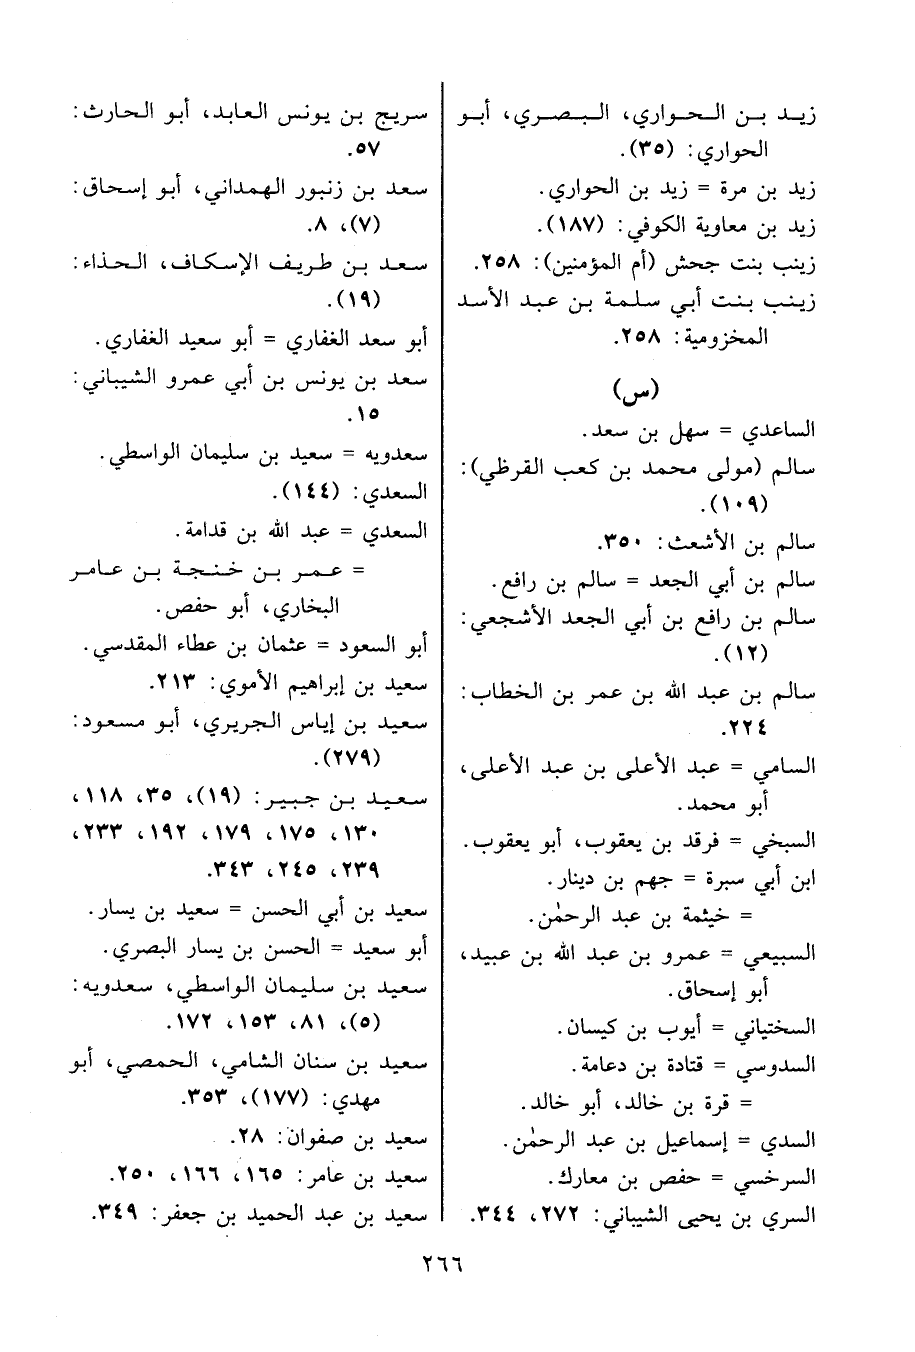 زيد بن الحواري، البصري، أبو
الحواري: (٣٥).
زيد بن مرة = زيد بن الحواري.
زيد بن معاوية الكوفي: (١٨٧).
زينب بنت جحش (أم المؤمنين): ٢٥٨.
زينب بنت أبي سلمة بن عبد الأسد
المخزومية: ٢٥٨.
(س)
الساعدي = سهل بن سعد.
سالم (مولى محمد بن كعب القرظي):
(١٠٩).
سالم بن الأشعث: ٣٥٠.
سالم بن أبي الجعد = سالم بن رافع.
سالم بن رافع بن أبي الجعد الأشجعي:
(١٢).
سالم بن عبد الله بن عمر بن الخطاب:
٢٢٤.
السامي = عبد الأعلى بن عبد الأعلى،
أبو محمد.
السبخي = فرقد بن يعقوب، أبو يعقوب.
ابن أبي سبرة = جهم بن دينار.
= خيثمة بن عبد الرحمٰن.
السبيعي = عمرو بن عبد الله بن عبيد،
أبو إسحاق.
السختياني = أيوب بن كيسان.
السدوسي = قتادة بن دعامة.
= قرة بن خالد، أبو خالد.
السدي = إسماعيل بن عبد الرحمٰن.
السرخسي = حفص بن معارك.
السري بن يحيى الشيباني: ٢٧٢، ٣٤٤.
سريج بن يونس العابد، أبو الحارث:
٥٧.
سعد بن زنبور الهمداني، أبو إسحاق:
(٧)، ٨.
سعد بن طريف الإسكاف، الحذاء:
(١٩).
أبو سعد الغفاري = أبو سعيد الغفاري.
سعد بن يونس بن أبي عمرو الشيباني:
١٥.
سعدويه = سعيد بن سليمان الواسطي.
السعدي: (١٤٤).
السعدي = عبد الله بن قدامة.
= عمر بن خنجة بن عامر
البخاري، أبو حفص.
أبو السعود = عثمان بن عطاء المقدسي.
سعيد بن إبراهيم الأموي: ٢١٣.
سعيد بن إياس الجريري، أبو مسعود:
(٢٧٩).
سعيد بن جبير: (١٩)، ٣٥، ١١٨،
١٣٠، ١٧٥، ١٧٩، ١٩٢، ٢٣٣،
٢٣٩، ٢٤٥، ٣٤٣.
سعيد بن أبي الحسن = سعيد بن يسار.
أبو سعيد = الحسن بن يسار البصري.
سعيد بن سليمان الواسطي، سعدويه:
(٥)، ٨١، ١٥٣، ١٧٢.
سعيد بن سنان الشامي، الحمصي، أبو
مهدي: (١٧٧)، ٣٥٣.
سعيد بن صفوان: ٢٨.
سعيد بن عامر: ١٦٥، ١٦٦، ٢٥٠.
سعيد بن عبد الحميد بن جعفر: ٣٤٩.
٢٦٦